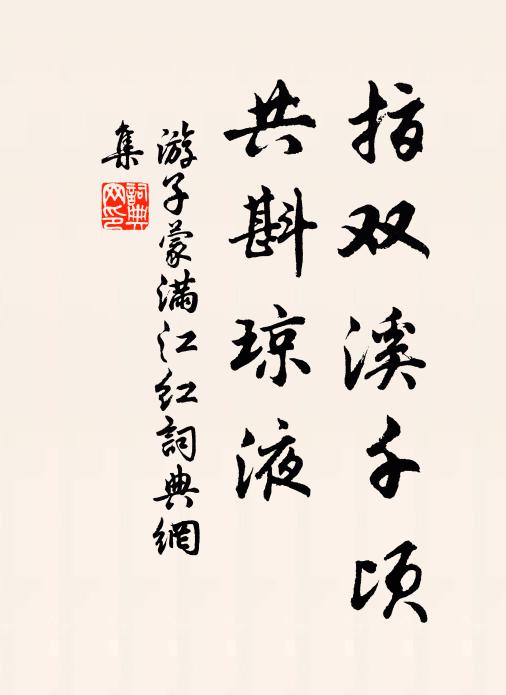 指双溪千顷
共斟琼液
游子蒙满江红詞典網
集
詞典
网印